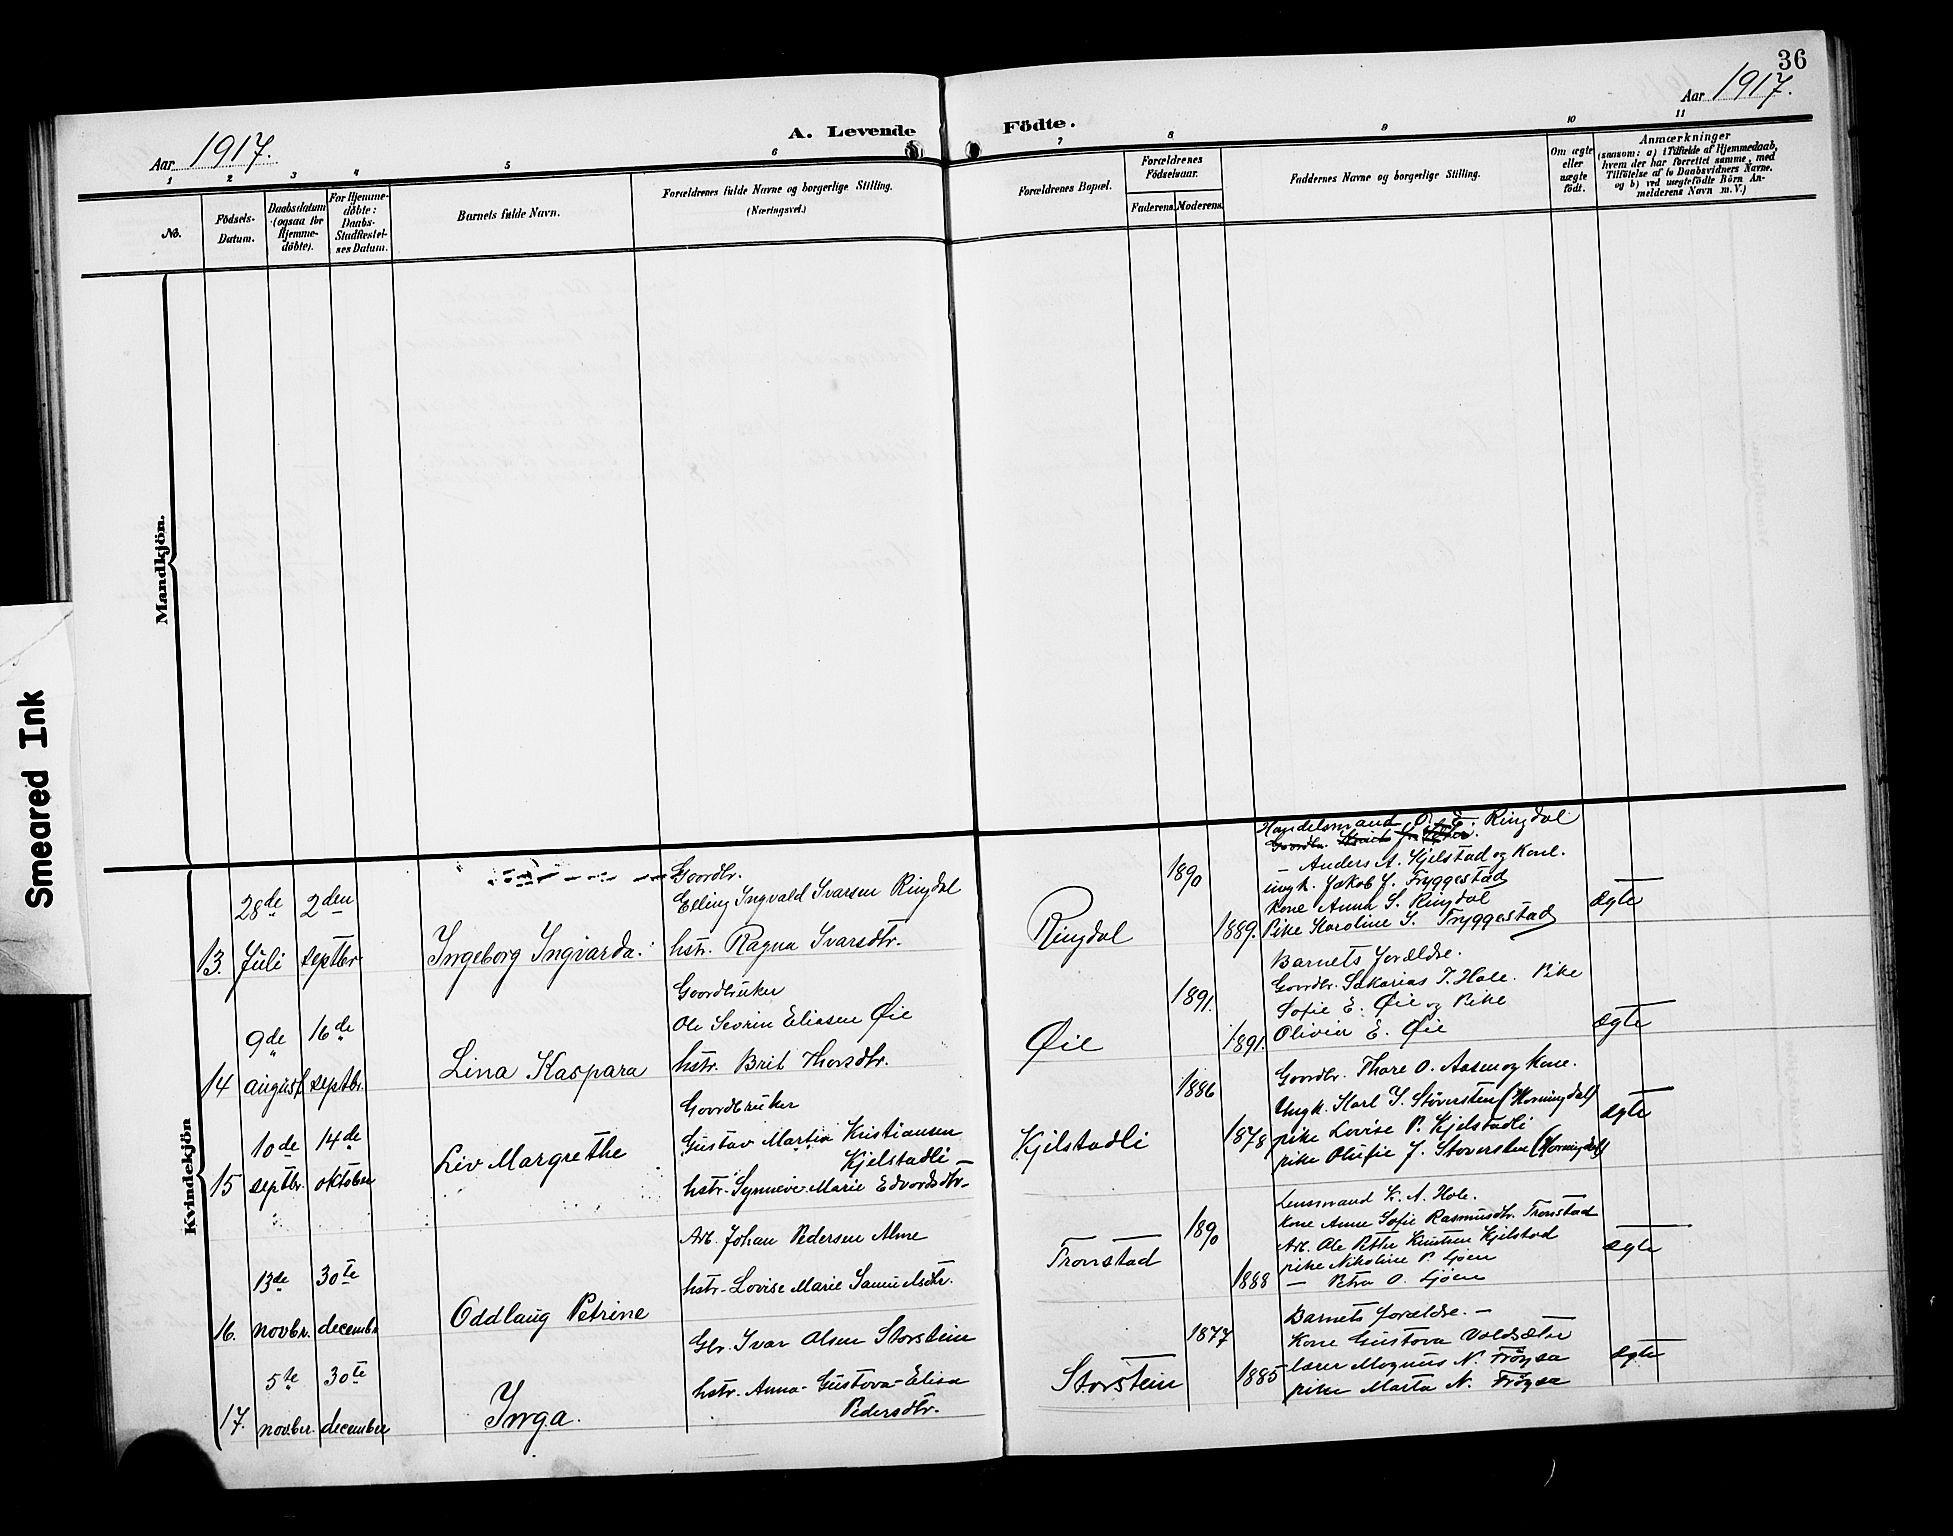 36
Aar 1917.
A. Levende Födte.
Aar 1917.
1 2 3 4 5 6 7 8 9 10 11
No.
Födsels-
Datum.
Daabsdatum
(ogsaa for
Hjemme-
döbte).
For Hjemme-
döbte:
Daabs-
Stadfæstel-
ses Datum.
Barnets fulde Navn.
Forældrenes fulde Navne og borgerlige Stilling.
(Næringsvei.)
Forældrenes Bopæl.
Forældrenes
Födselsaar.
Faderens. Moderens.
Faddernes Navne og borgerlige Stilling.
Om ægte
eller
uægte
födt.
Anmærkninger
(saasom: a) i Tilfælde af Hjemmedaab,
hvem der har forrettet samme, med
Tilföielse af to Daabsvidners Navne.
og b) ved uægtefödte Börn An-
melderens Navn m. V.)
Mandkjön.
Smeared Ink
Kvindekjön
13.
28de
Juli
2den
septbr.
Ingeborg Ingvarda.
Goardbr.
Elling Ingvald Ivarsen Ringdal
hstr. Ragna Ivarsdtr.
Ringdal
1890
1889.
Handelsmand O. E. Ringdal
Goardbr.
— Anders A. Kjelstad og Kone.
ungk. Jakob J. Tryggestad
Kone Anna S. Ringdal
Pike Karoline S. Tryggestad
ægte
14
9de
august
16de
septbr.
Lina Kaspara
Goardbruker
Ole Sevrin Eliasen Øie
hstr. Brit Thorsdtr.
Øie
1891.
1891.
Barnets forældre.
Goardbr. Sakarias T. Hole. Pike
Sofie E. Øie og Pike
Olivia E. Øie
ægte
15
10de
septbr.
14de
oktober
Liv Margrethe
Goardbruker
Gustav Martin Kristiansen
Kjelstadli
hstr. Synneve Marie Edvardsdtr.
Kjelstadli
1886
1878
Goardbr. Thore O. Aasen og Kone.
Ungk. Karl J. Støversten (Horningdal)
pike Lovise P. Kjelstadli
pike Olufie J. Støversten (Horningdal)
ægte
16.
13de
novbr.
30te
decembr
Oddlaug Petrine
Arb. Johan Pedersen Alme
hstr. Lovise Marie Samuelsdtr.
Tronstad
1890
1888
Lensmand K. A. Hole.
Kone Anne Sofie Rasmusdtr. Tronstad
Arb. Ole Petter Knutsen Kjelstad
pike Nikoline P. Ljøen
— Petra O. Ljøen
ægte
17.
5te
novber.
30te
december
Inga.
Gbr. Ivar Olsen Storstein
hstr. Anna-Gustava-Elisa
Pedersdtr.
Storstein
1877
1885
Barnets forældre. —
Kone Gustava Valdsæter
lærer Magnus N. Frøysa
pike Marta N. Frøysa
ægte